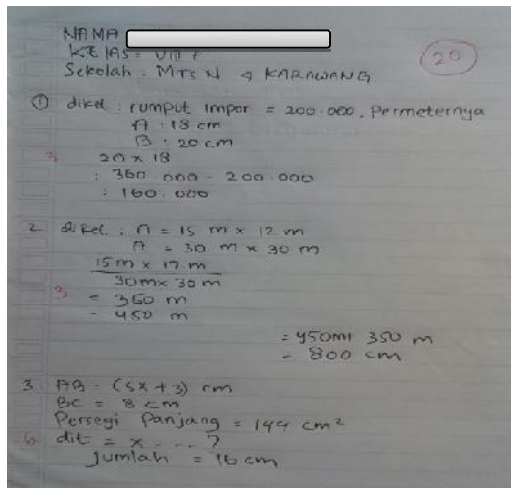 NAMA
KELAS = VIII 7
Sekolah : MTs N 4 KARAWANG
20
① diket : rumput impor = 200.000, Permeternya
A : 18 cm
B : 20 cm
3 20 x 18
: 360.000 - 200.000
: 160.000
2 diket : A = 15 m x 12 m
A = 30 m x 30 m
15 m x 12 m
30 m x 30 m
3 = 360 m
- 450 m
= 450 m 350 m
= 800 cm
3 AB = (5x + 3) cm
BC = 8 cm
Persegi Panjang = 144 cm²
6 dit = x ... ?
jumlah = 16 cm